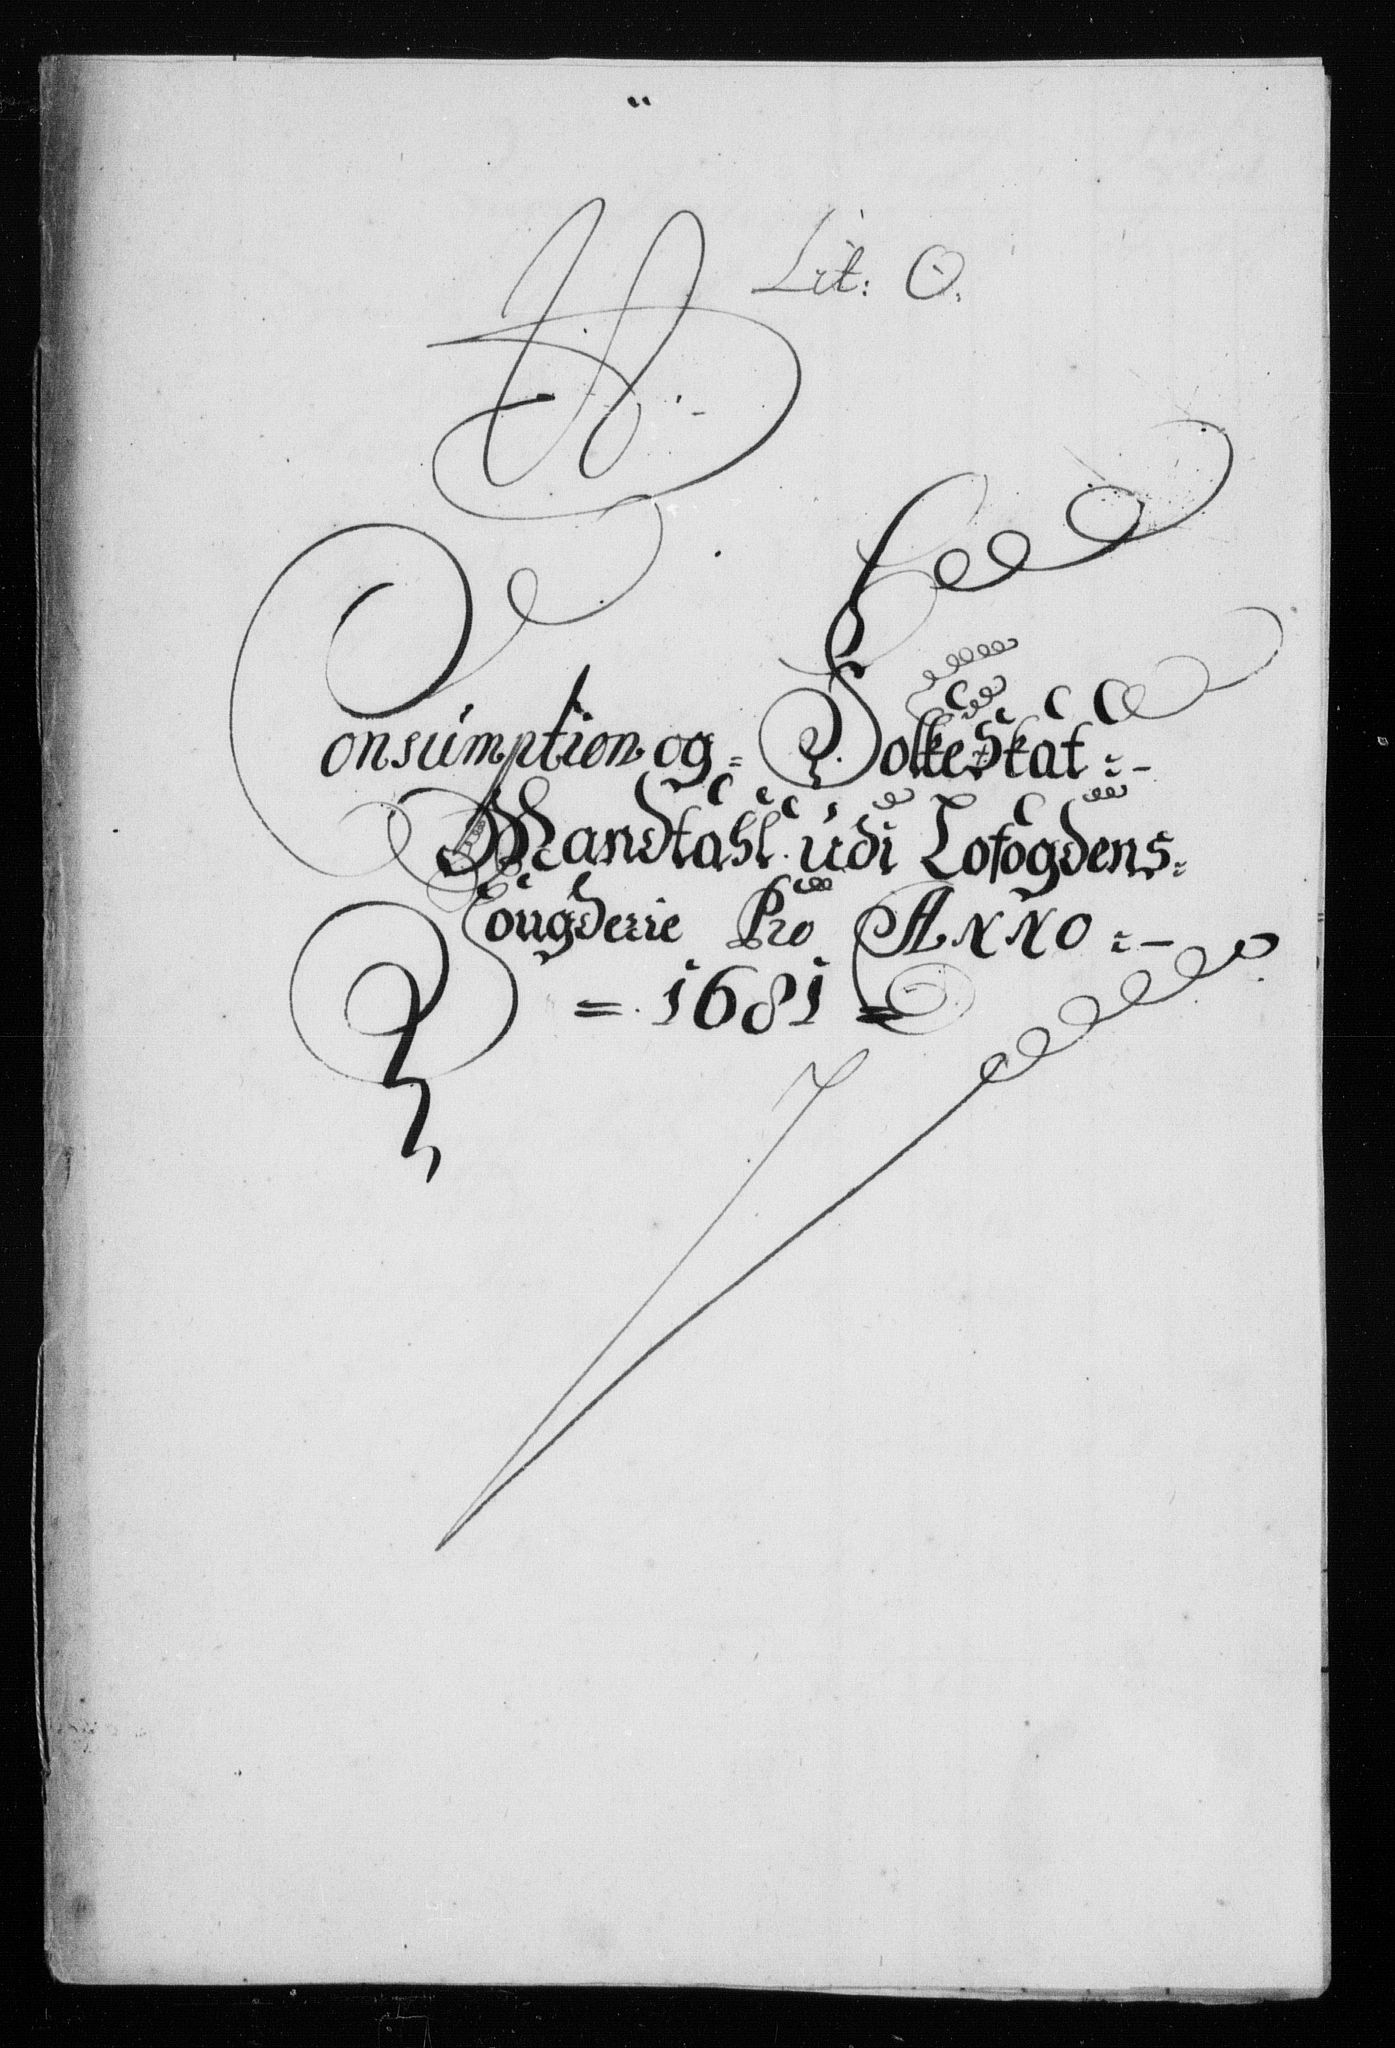 Lit: O.
Consumption og= FolkeSkat :-
Mandtahl udi Lofogdens=
Fougderie Pro ANNO :-
= 1681 =